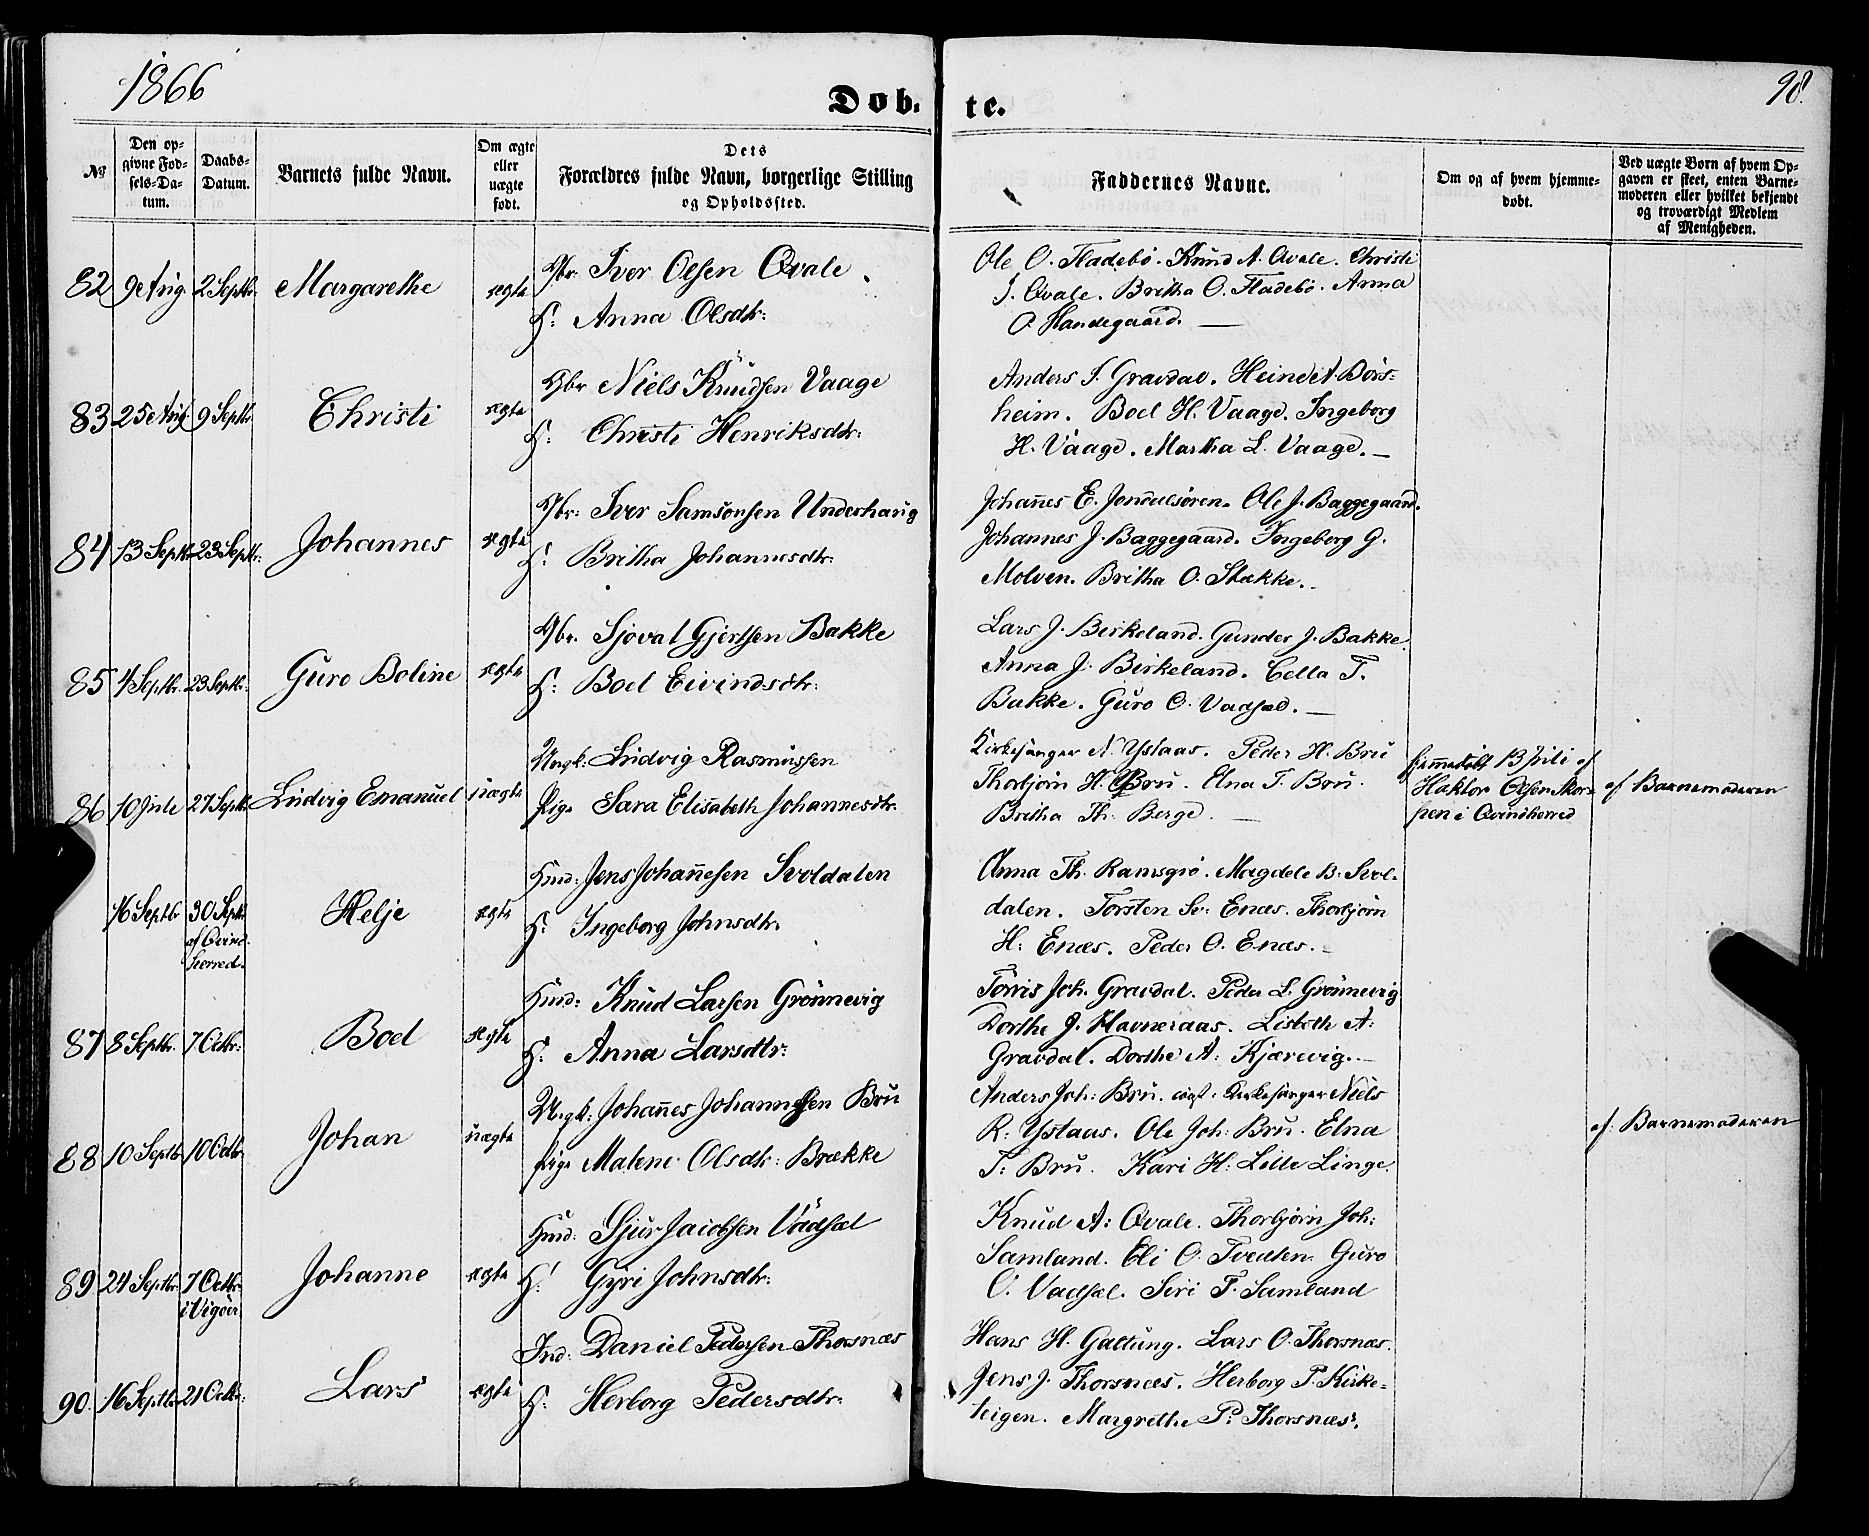 1866
Døb. te.
98.
No
Den op-
givne Fød-
sels-Da-
tum.
Daabs-
Datum.
Barnets fulde Navn.
Om ægte
eller
uægte
født.
Dets
Forældres fulde Navn, borgerlige Stilling
og Opholdssted.
Faddernes Navne.
Om og af hvem hjemme-
døbt.
Ved uægte Børn af hvem Op-
gaven er skeet, enten Barne-
moderen eller hvilket bekjendt
og troværdigt Medlem
af Menigheden.
82 9 Aug. 2 Septbr. Margarethe ægte
Gbr. Iver Olsen Qvale
H: Anna Olsdtr:
Ole O. Fladebø. Knud A. Qvale. Christi
I. Qvale. Britha O. Fladebø. Anna
O. Handegaard. —
83 25 Aug. 9 Septbr. Christi ægte
Gbr Niels Knudsen Vaage
H: Christi Henriksdtr:
Anders S. Gravdal. Heine A. Børs-
heim. Boel H. Vaage. Ingeborg
H. Vaage. Martha L. Vaage. —
84 13 Septbr. 23 Septbr. Johannes ægte
Gbr: Iver Samsonsen Underhaug
H: Britha Johannesdtr:
Johannes E. Jondalsøren. Ole J. Baggegaard.
Johannes J. Baggegaard. Ingeborg G.
Molven. Britha O. Stække.
85 4 Septbr. 23 Septbr. Guro Boline ægte
Gbr. Sjoval Gjertsen Bakke
H: Boel Eivindsdtr:
Lars J. Birkeland. Gunder J. Bakke.
Anna J. Birkeland. Cella T.
Bakke. Guro O. Vadsel. —
86 10 Jule 27 Septbr. Ludvig Emanuel uægte
Ungk: Ludvig Rasmussen
Pige Sara Elisabeth Johannesdtr.
Kirkesanger N. Ystaas. Peder H. Bru
Thorbjørn H. Bru. Elna T. Bru.
Britha Th. Berge. —
hjemmedøbt 13 Juli af
Haktor Olsen Skor-
pen i Qvindherred
af Barnemoderen
16 Septbr 30 Septbr
af Qvind-
herred.
Helje ægte
Huusm: Jens Johannesen Svoldalen
H: Ingeborg Johnsdtr.
Anna Th. Ramsgrø. Magdele B. Svol-
dalen. Torsten Sv: Enæs. Thorbjørn
H: Enæs. Peder O. Enæs. —
87 8 Septbr. 7 Octbr: Boel ægte
Huusm: Knud Larsen Grønnevig
H: Anna Larsdtr:
Torris Joh. Gravdal. Peder L. Grønnevig
Dorthe J. Havneraas. Lisbeth A:
Gravdal. Dorthe A: Kjærevig. —
88 10 Septbr 10 Octbr. Johan uægte
Ungk: Johannes Johannesen Bru
Pige Malene Olsdtr: Brække
Anders Joh: Bru. Kirkesanger Niels
R: Ystaas. Ole Joh: Bru. Elna
T: Bru. Kari H: Lille Linge.
af: Barnemoderen
89 24 Septbr. 7 Octbr.
i Vigøer
Johanne ægte
Huusm: Sjur Jacobsen Vadsel
H: Gyri Johnsdtr:
Knud A: Qvale. Thorbjørn Joh:
Samland. Eli O. Tveden. Guro
O. Vadsel. Siri T. Samland
90. 16 Septbr. 21 Octbr: Lars ægte
Ind: Daniel Pedersen Thorsnæs
H: Herborg Pedersdtr:
Hans H. Galtung. Lars O. Thorsnæs.
Jens J. Thorsnæs. Herborg P. Kirke-
teigen. Margrethe P: Thorsnæs.